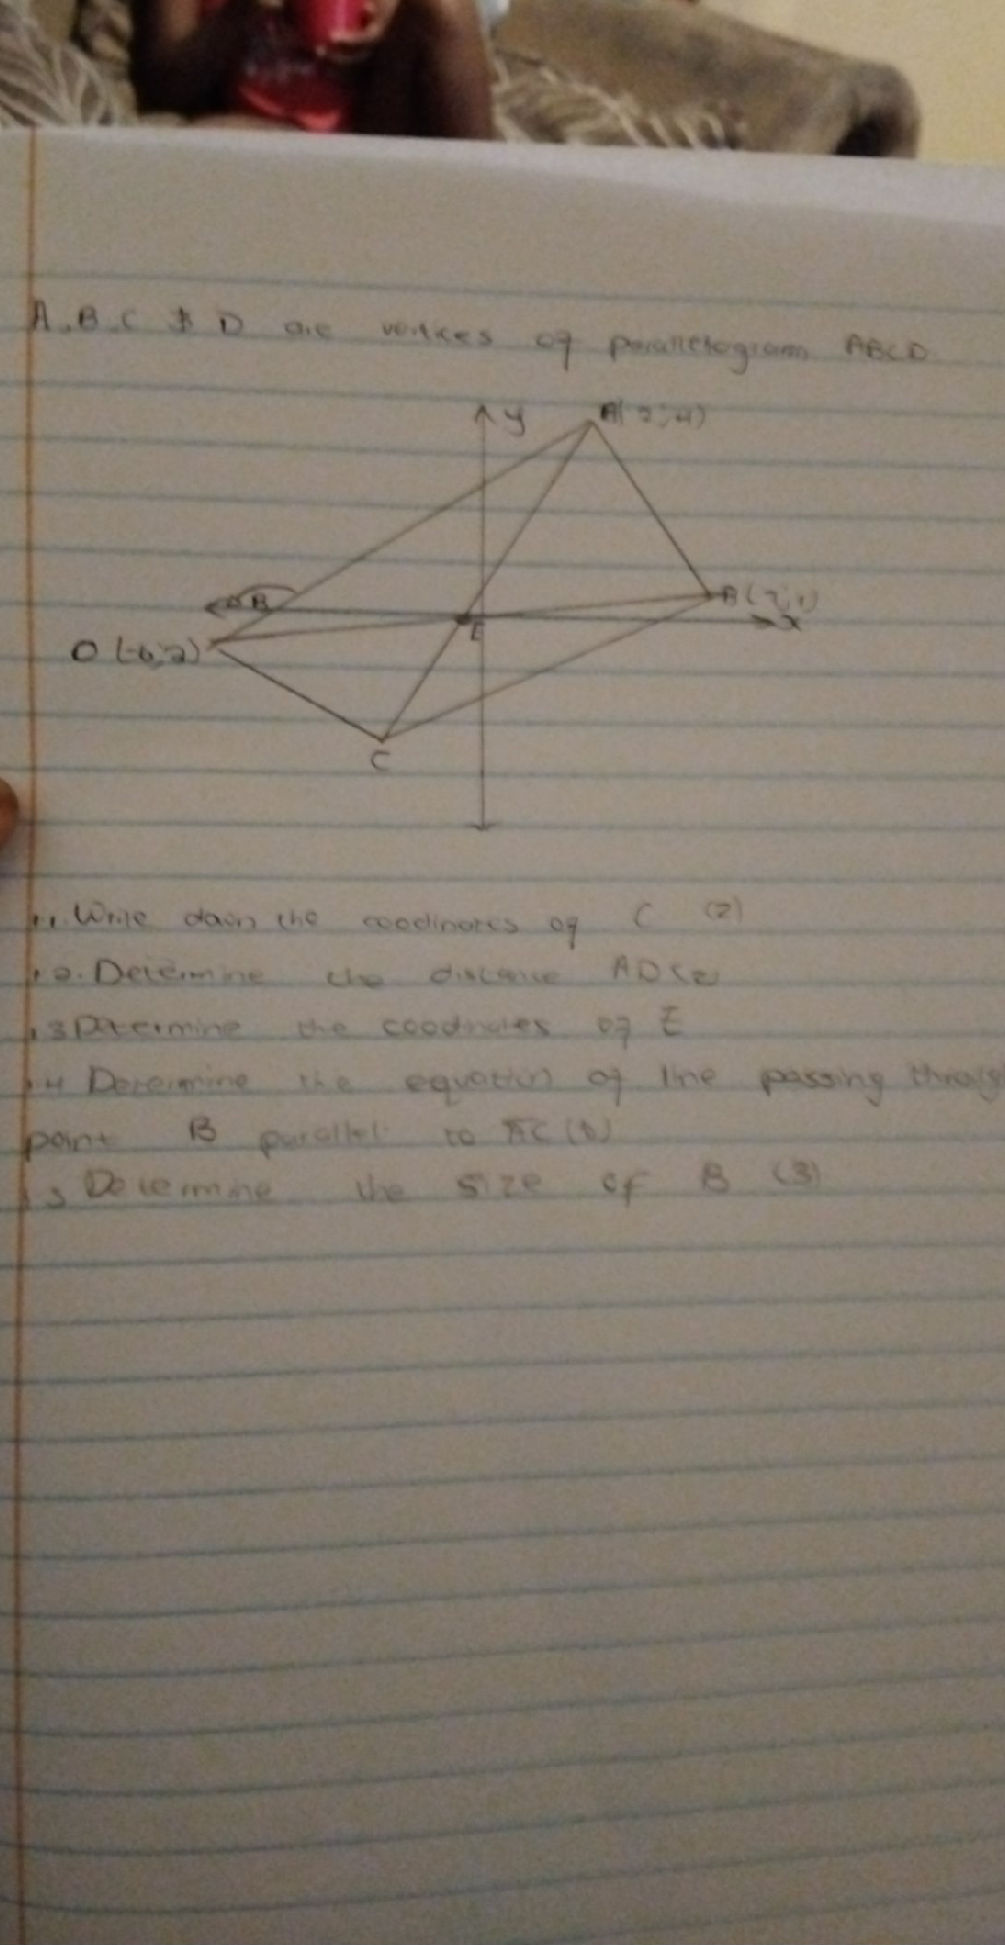 A, B, C & D are vertices of parallelogram ABCD
y
A(2;4)
B
B(7;1)
x
E
D (-6;-2)
C
1.1. Write down the coodinates of C (2)
1.2. Determine the distance AD (2)
1.3 Determine the coodnates of E
1.4 Determine the equation of line passing throug
point B parallel to AC (3)
Determine the size of B (3)